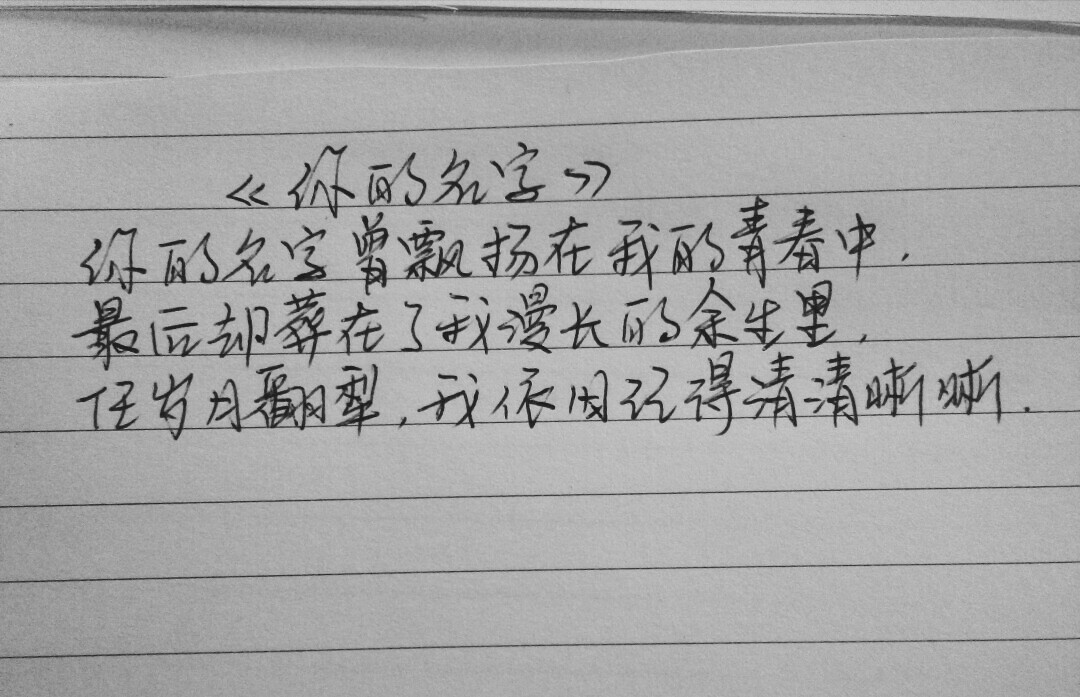 《你的名字》
你的名字曾飘扬在我的青春中,
最后却葬在了我漫长的余生里,
任岁月翻犁,我依因记得清清晰晰.